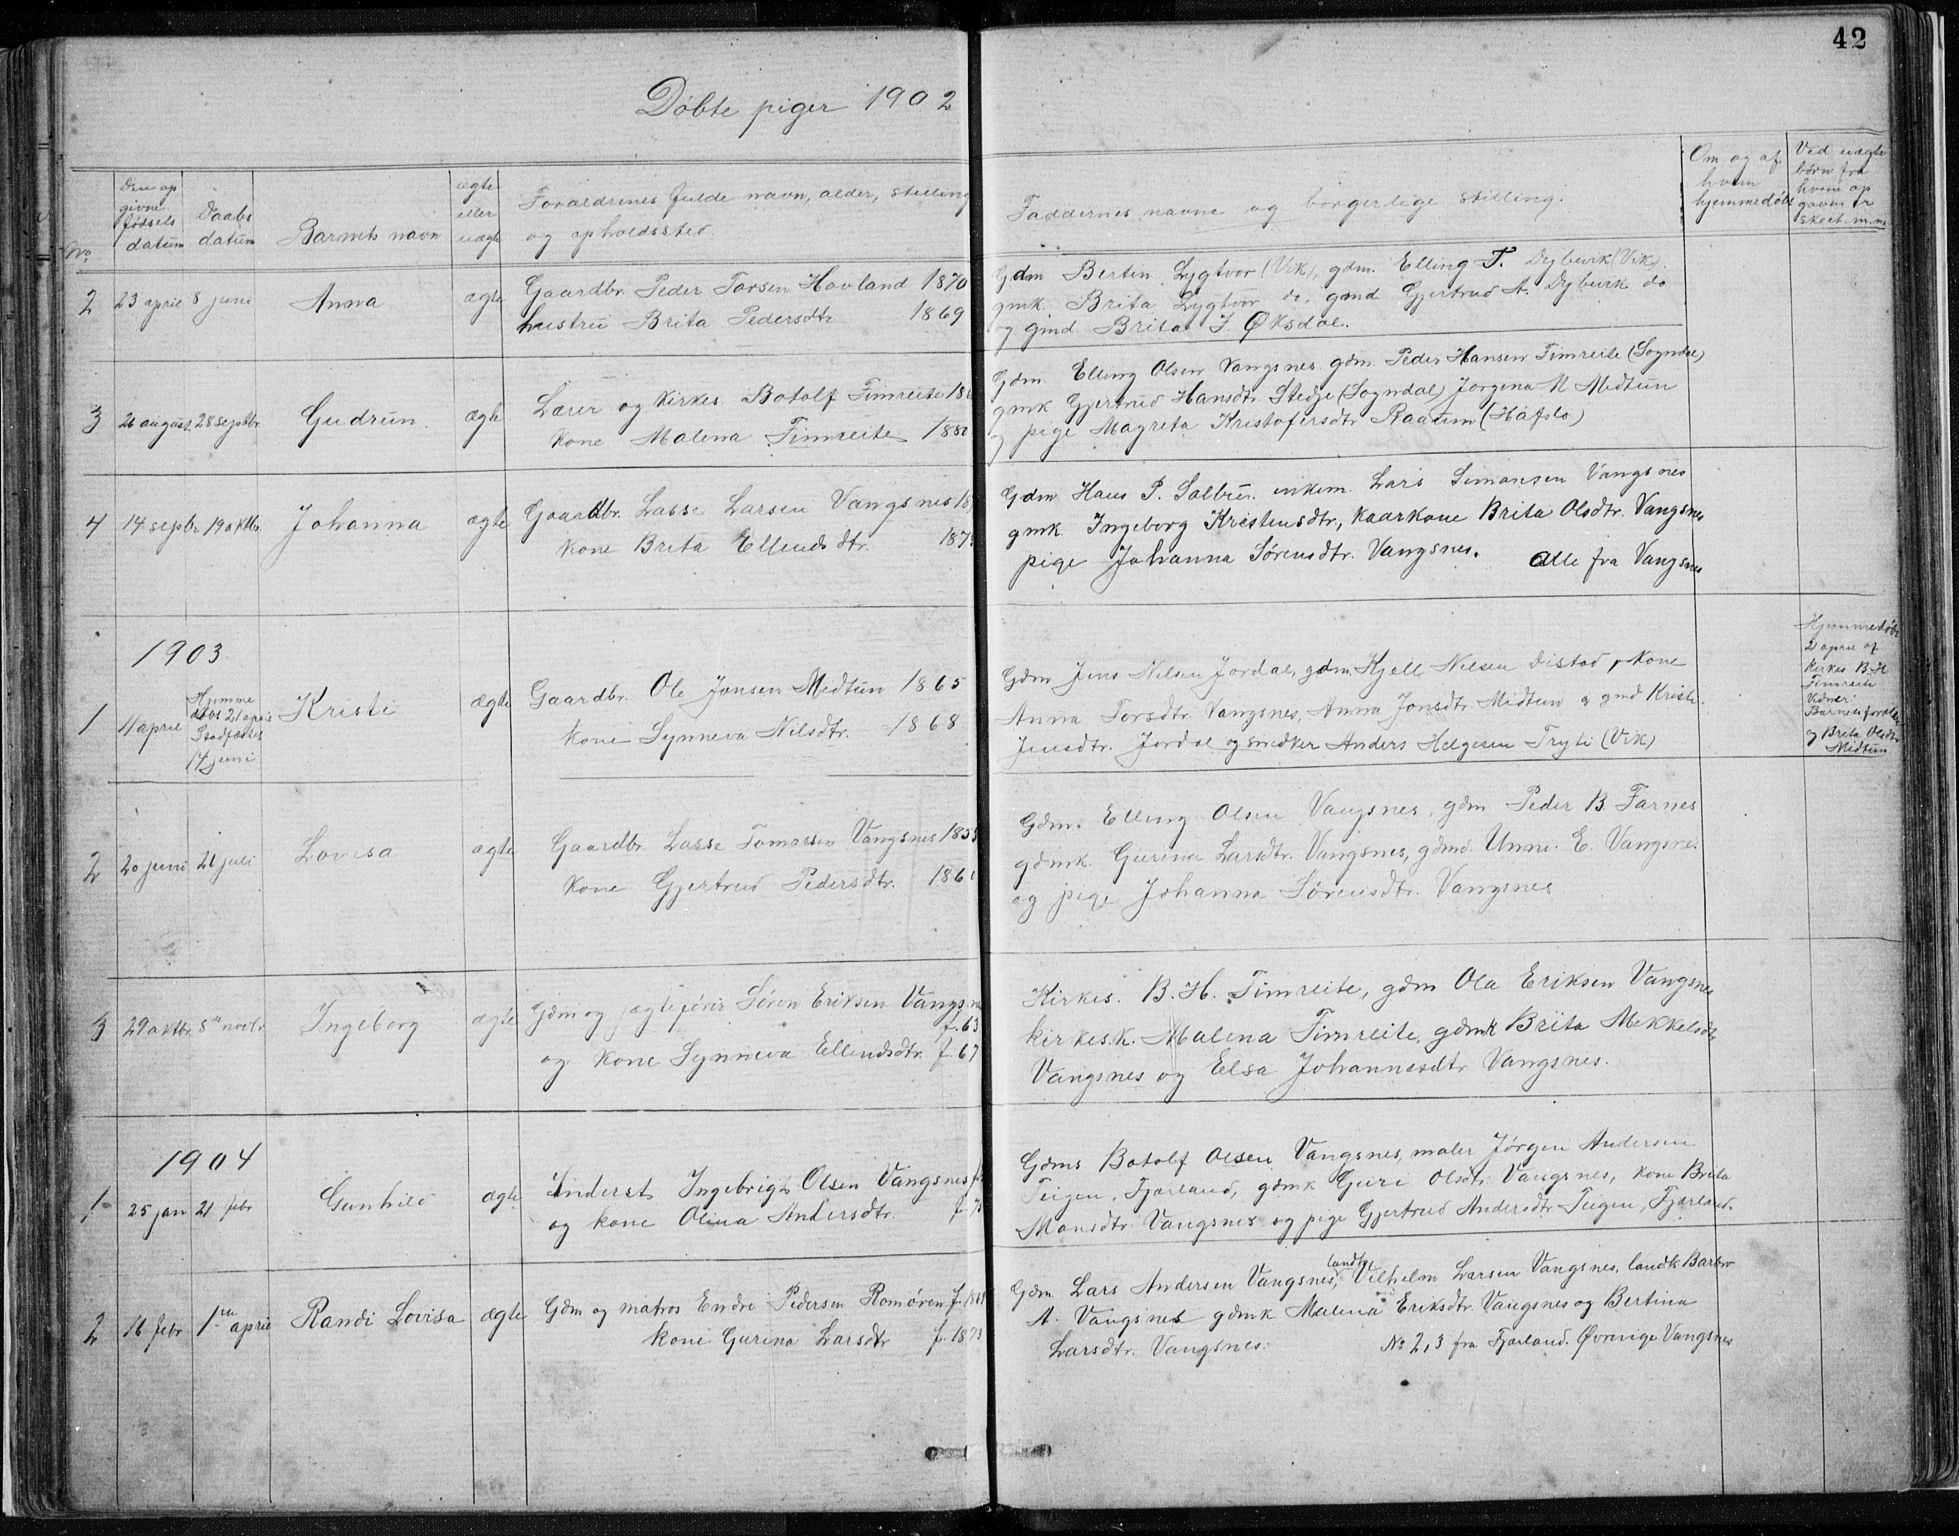 42
Døbte piger 1902
No
Den op
givne
fødsels
datum
Daabs
datum
Barnets navn
ægte
eller
uægte
Forældrenes fulde navn, alder, stilling
og opholdssted.
Faddernes navne og borgerlige stilling.
Om og af
hvem
hjemmedøbt
Ved uægte
børn fra
hvem op
gaven er
skeet. m.m.
2 23 april 8 juni Anna ægte
Gaardbr. Peder Torsen Hovland 1870
hustru Brita Pedersdtr 1869
Gdm Berten Lygtvor (Vik), gdm. Elling T. Dybevik (Vik),
gmk. Brita Lygtvor do, gmd Gjertrud A. Dybevik do
og gmd. Brita J. Øksdal.
3 26 august 28 septbr. Gudrun ægte
Lærer og Kirkes. Botolf Timreite 186
kone Malena Timreite 188
Gdm. Elling Olsen Vangsnes gdm. Peder Hansen Timreite (Sogndal)
gmk Gjertrud Hansdtr. Stedje (Sogndal) Jorgena N Medtun
og pige Magreta Kristofersdtr Raaum (Hafslo)
4 14 sepbr 19 oktbr. Johanna ægte
Gaardbr. Lasse Larsen Vangsnes 18
kone Brita Ellendsdtr. 187
Gdm Hans P. Salbu. enkem. Lars Simonsen Vangsnes
gmk. Ingeborg Kristensdtr, Kaarkone Brita Olsdtr. Vangsnes
pige Johanna Sørensdtr. Vangsnes. alle fra Vangsnes
1903
1 11 april Hjemme
døbt 21 april
Stadfæstes
14 juni
Kristi ægte
Gaardbr. Ole Jonsen Medtun 1865
kone Synneva Nilsdtr. 1868
Gdm Jens Nilsen Jordal, gdm. Kjell Nilsen Distad, Kone
Anna Torsdtr. Vangsnes, Anna Jonsdtr. Midtun og gmd Kristi
Jensdtr. Jordal og snedker Anders Helgesen Tryti (Vik)
Hjemmedøbt
21 april af
Kirkes B. H.
Timreite
Vidner:
Barnets forældre
og Brita Olsdtr
Midtun
2 20 juni 21 juli Lovisa ægte
Gaardbr. Lasse Tomassen Vangsnes 185
kone Gjertrud Pedersdtr. 186
Gdm. Elling Olsen Vangsnes, gdm Peder B. Farnes
gdmk. Gurina Larsdtr. Vangsnes, gdmd. Unni E. Vangsnes
og pige Johanna Sørensdtr. Vangsnes
3 29 oktbr. 8de novbr Ingeborg ægte
Gdm og jægtefører Søren Eriksen Vangsnes
f. 63
og kone Synneva Ellendsdtr. f. 67
Kirkes. B. H. Timreite, gdm Ola Eriksen Vangsnes
kirkes.k. Malena Timreite, gdmk Brita Mekkelsdtr
Vangsnes og Elsa Johannesdtr Vangsnes.
1904
1 25 jan 21 febr Gunhild ægte
Inderst Ingebrigt Olsen Vangsnes f.
og kone Olina Andersdtr. f 7
Gdms Botolf Olsen Vangsnes, maler Jørgen Andersen
Teigen, Fjærland, gdmk Guri Olsdtr. Vangsnes, kone Brita
Monsdtr. Vangsnes og pige Gjertrud Andersdtr Teigen, Fjærland.
2 16 febr 1ste april Randi Lovisa ægte
Gdm og matros Endre Pedersen Romøren f. 18
kone Gurina Larsdtr f. 1873
Gdm Lars Andersen Vangsnes, landh. Vilhelm Larsen Vangsnes, landh. Barbro
A. Vangsnes gdmk. Malena Eriksdtr. Vangsnes og Bertina
Larsdtr. Vangsnes. No 2, 3 fra Fjærland. Øvrige Vangsnes